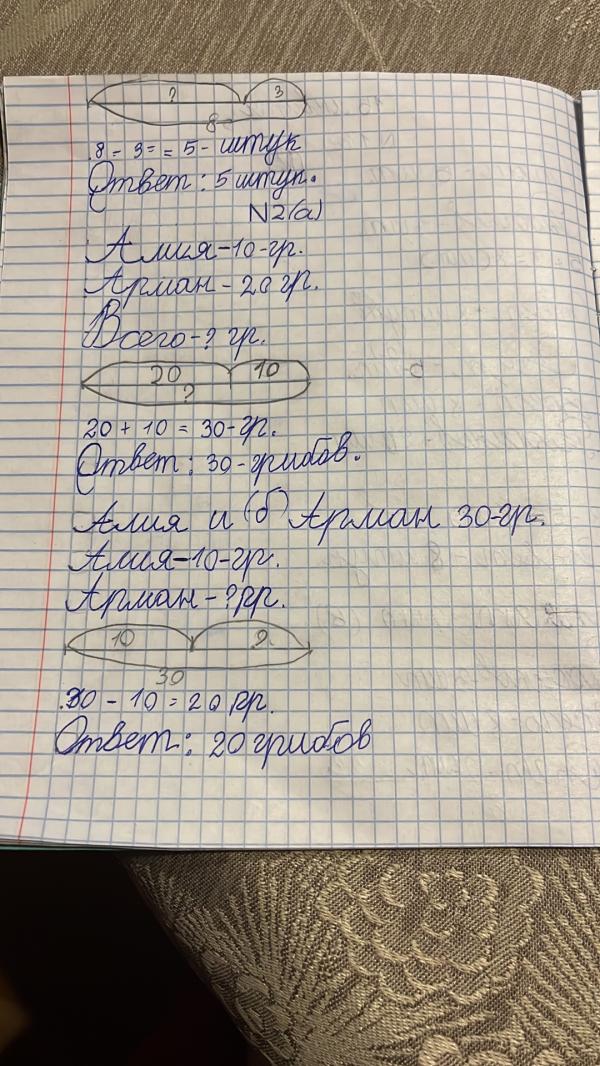 ? 3
8
8 - 3 = = 5 - штук
Ответ: 5 штук.
N2(а)
Алия-10-гр.
Арман - 20 гр.
Всего-? гр.
20 10
?
20 + 10 = 30-гр.
Ответ: 30-грибов.
Алия и (б) Арман 30-гр.
Алия-10-гр.
Арман - ?гр.
10 ?
30
30 - 10 = 20 гр.
Ответ: 20 грибов